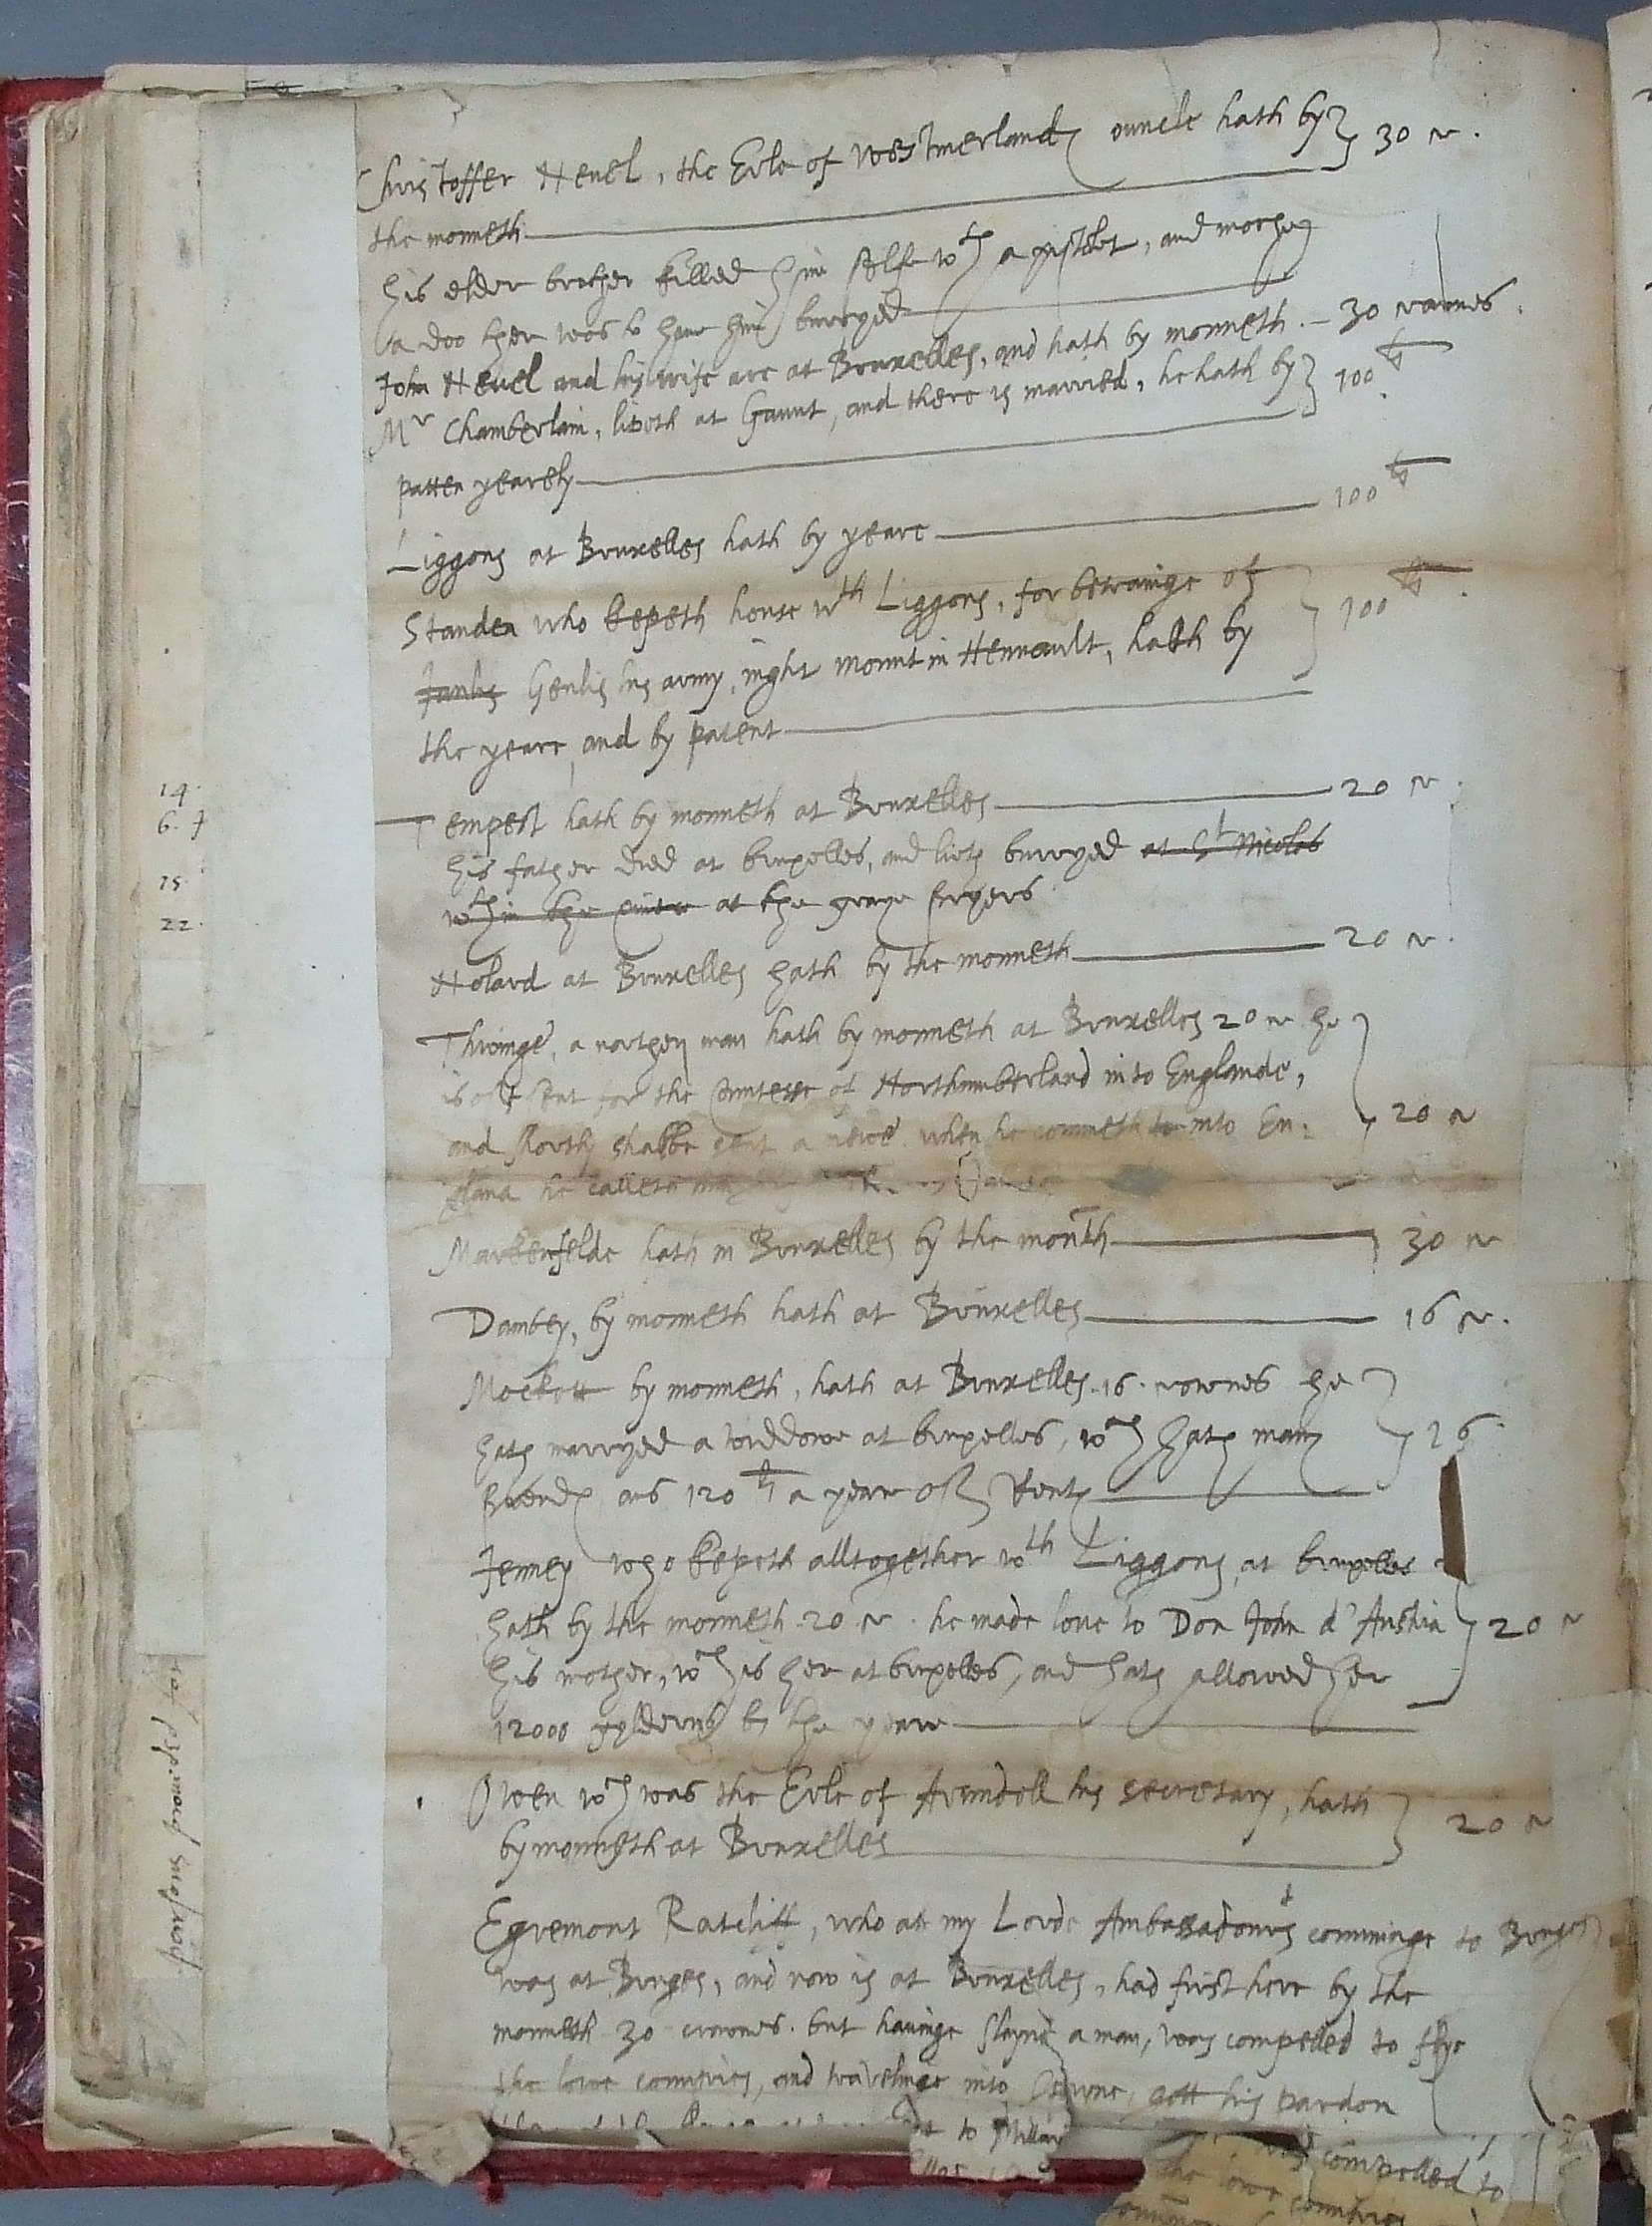 Christoffer Nevel, the Erle of Westmerlands ounele hath by } 30 cr.
the monneth
his elder brother killed him selfe wth a pistolet, and
a doo ther was to have him burryed
John Nevel and his wife are at Bruxelles, and hath by monneth. – 30 crownes.
Mr Chamberlain, liveth at Gaunt, and there is married, he hath by } 100 li.
patten yearely
Liggons at Bruxelles hath by yeare 100 li
Standen who kepeth house wth Liggons, for betrainge of } 100 li.
Janlis Genlis his army, night mount in Hennault, hath by
the yeare, and by patent
Tempest hath by monneth at Bruxelles 20 cr.
his father died at bruxelles, and lieth burryed at St Nicolas
wthin the at the graye fryers
Holard at Bruxelles hath by the monneth 20 cr.
Thwinge, a northen man hath by monneth at Bruxelles 20 cr he
is oft sent for the Countesse of Northumberland into Englande, } 20 cr
and shortly shalbe sent a newe when he commeth to into En:
gland he calleth
Markenfelde hath in Bruxelles by the month 30 cr
Danbey, by monneth hath at Bruxelles 16 cr.
Mockett by monneth, hath at Bruxelles .16. crownes he
hath marryed a widdowe at bruxelles, wch hath many } 16
friends and 120 li a yeare of Rent
Jenney who kepeth alltogether wth Liggons, at bruxelles
hath by the monneth 20 cr. he made love to Don John d'Austria } 20 cr
his mother, wch is her at bruxelles, and hath allowed her
12000 gylderns by the yeare
Owen wch was the Erle of Arundell his secretary, hath } 20 cr
by monneth at Bruxelles
Egremont Ratcliff, who at my Lorde Ambassadours comminge to Bruges
was at Bruges, and now is at Bruxelles, had first here by the
monneth 30 crownes. but havinge slayne a man, was compelled to flye
the lowe countries, and travelinge into gott his pardon
to Millan
compelled to
the lowe countries
14.
6. 7
15.
22.
persons provided for